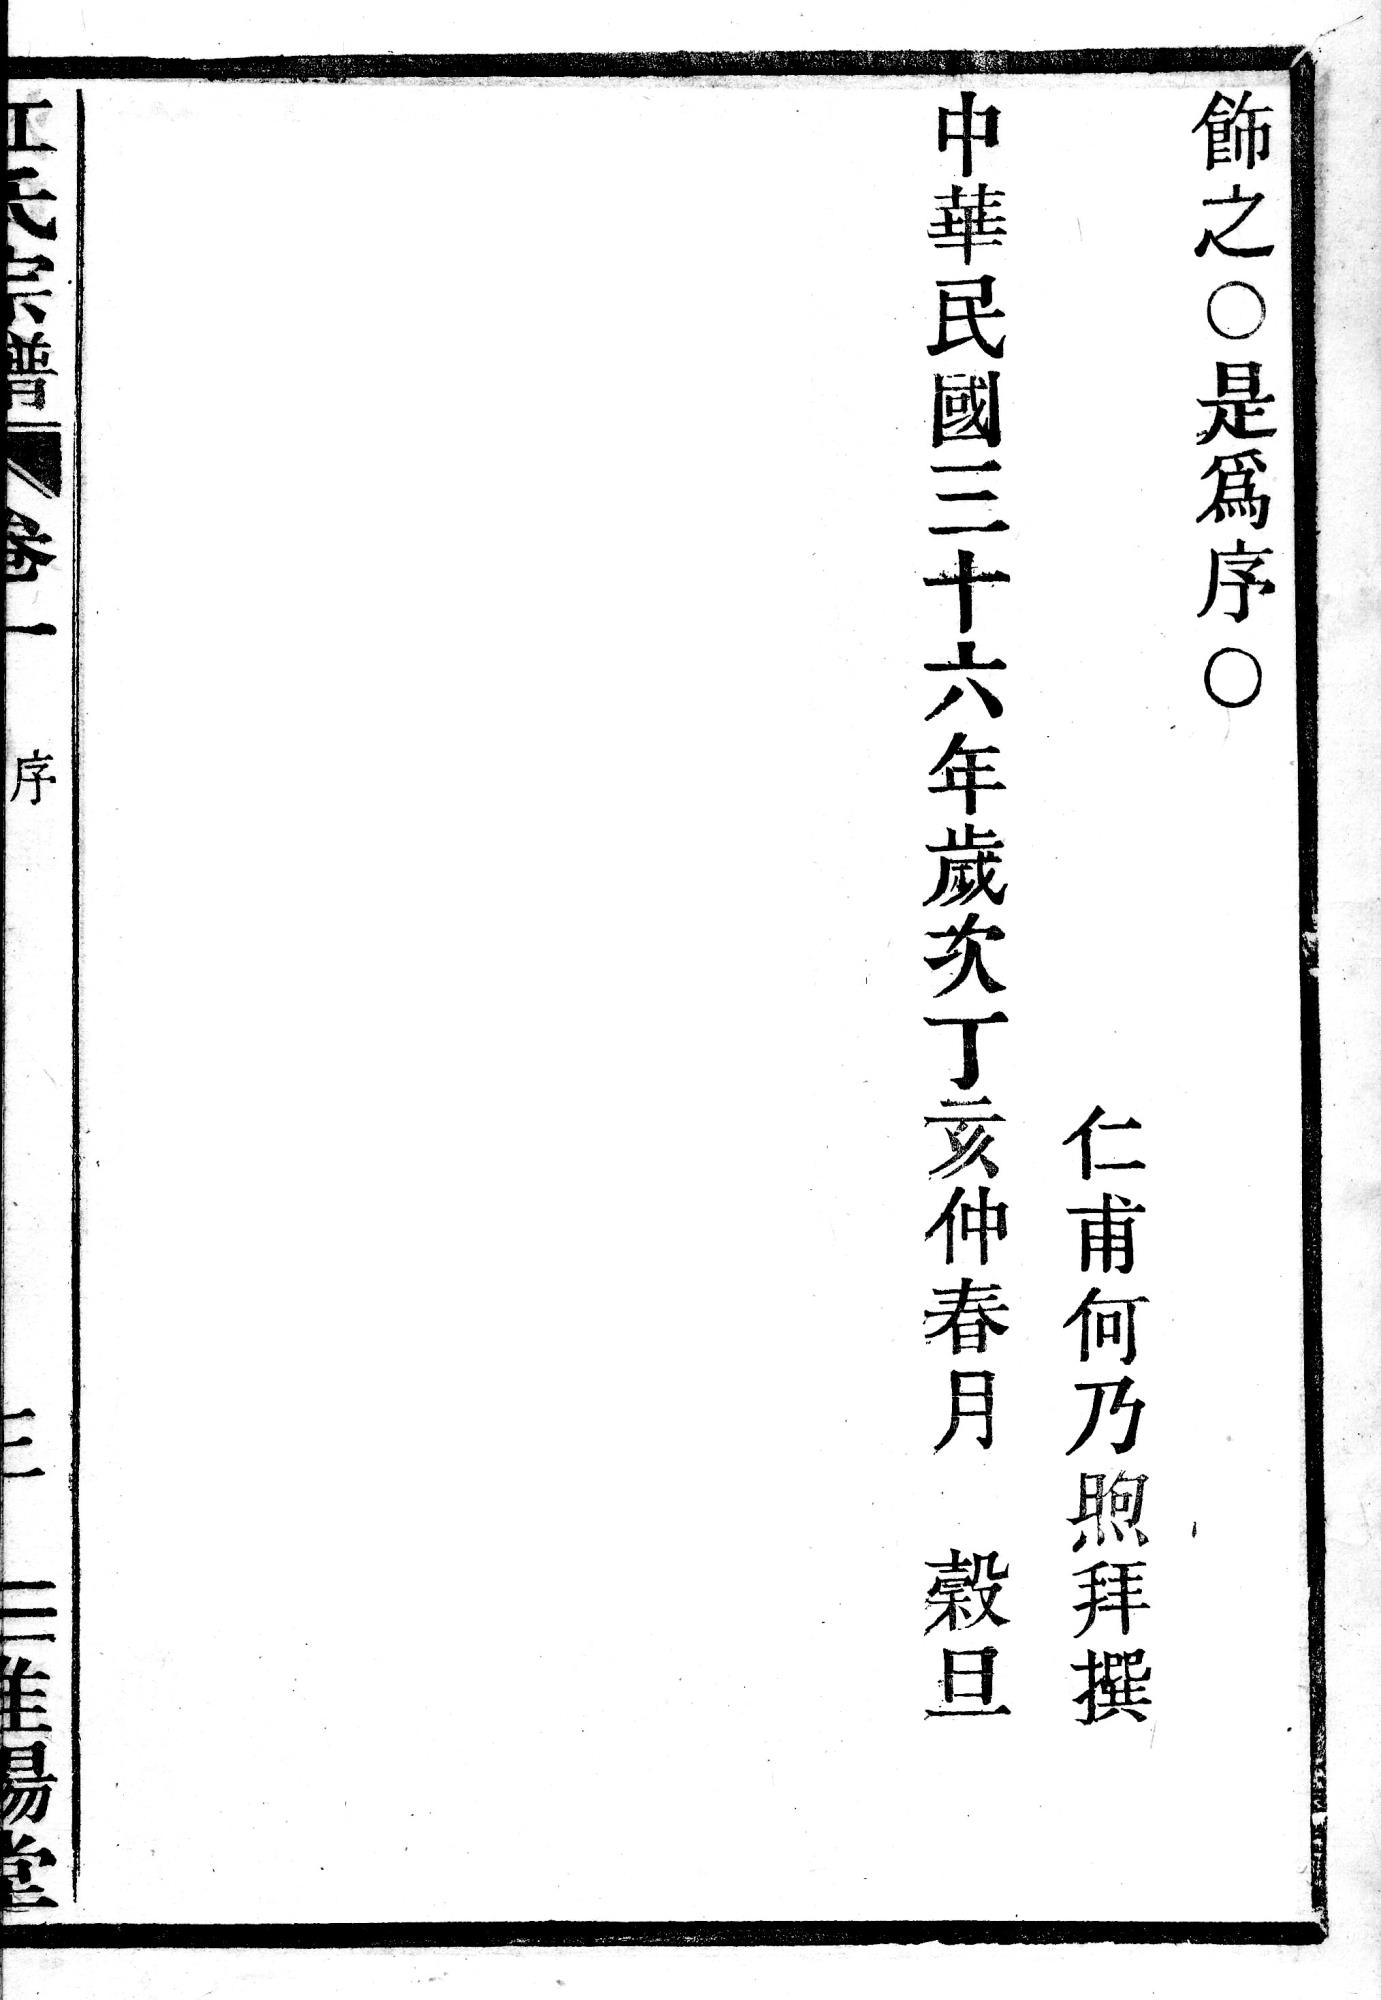 飾之○是爲序○
仁甫何乃煦拜撰
中華民國三十六年歲次丁亥仲春月　穀旦
江氏宗譜
卷一
序
三